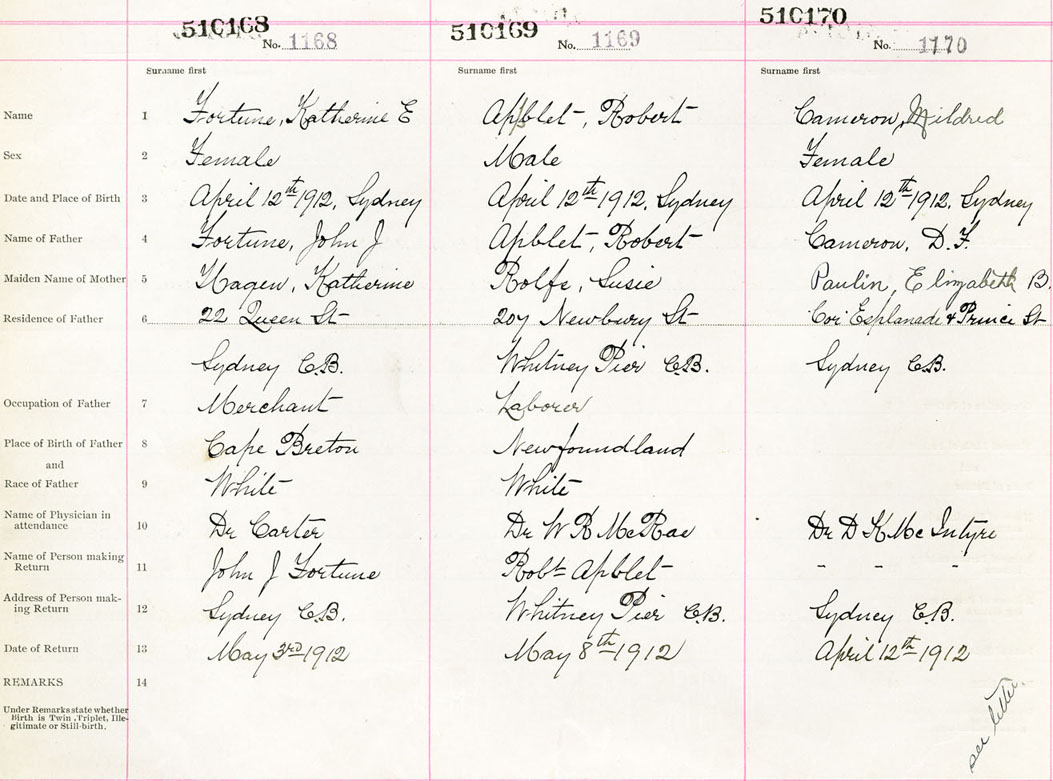 510168 510169 510170
No. 1168 No. 1169 No. 1170
Surname first Surname first Surname first
Name 1 Fortune, Katherine E Apblet, Robert Cameron, Mildred
Sex 2 Female Male Female
Date and Place of Birth 3 April 12th 1912, Sydney April 12th 1912, Sydney April 12th 1912, Sydney
Name of Father 4 Fortune, John J Apblet, Robert Cameron, D. F.
Maiden Name of Mother 5 Hagen, Katherine Rolfe, Susie Paulin, Elizabeth B.
Residence of Father 6 22 Queen St 207 Newbury St Cor Esplanade & Prince St
Sydney C.B. Whitney Pier C.B. Sydney C.B.
Occupation of Father 7 Merchant Laborer
Place of Birth of Father 8 Cape Breton Newfoundland
and
Race of Father 9 White White
Name of Physician in
attendance 10 Dr Carter Dr W R McRae Dr D K Mc Intyre
Name of Person making
Return 11 John J Fortune Robt Apblet - - -
Address of Person mak-
ing Return 12 Sydney C.B. Whitney Pier C.B. Sydney C.B.
Date of Return 13 May 3rd 1912 May 8th 1912 April 12th 1912
REMARKS 14
Under Remarks state whether
Birth is Twin, Triplet, Ille-
gitimate or Still-birth.
see letter.